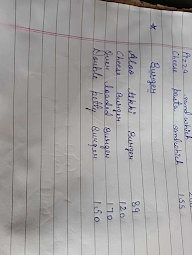 Pizza sandwich
Cheese pasta sandwich 155
* Burger
Aloo tikki Burger 89
Cheese Burger 120
Burger 170
Double patty Burger 150